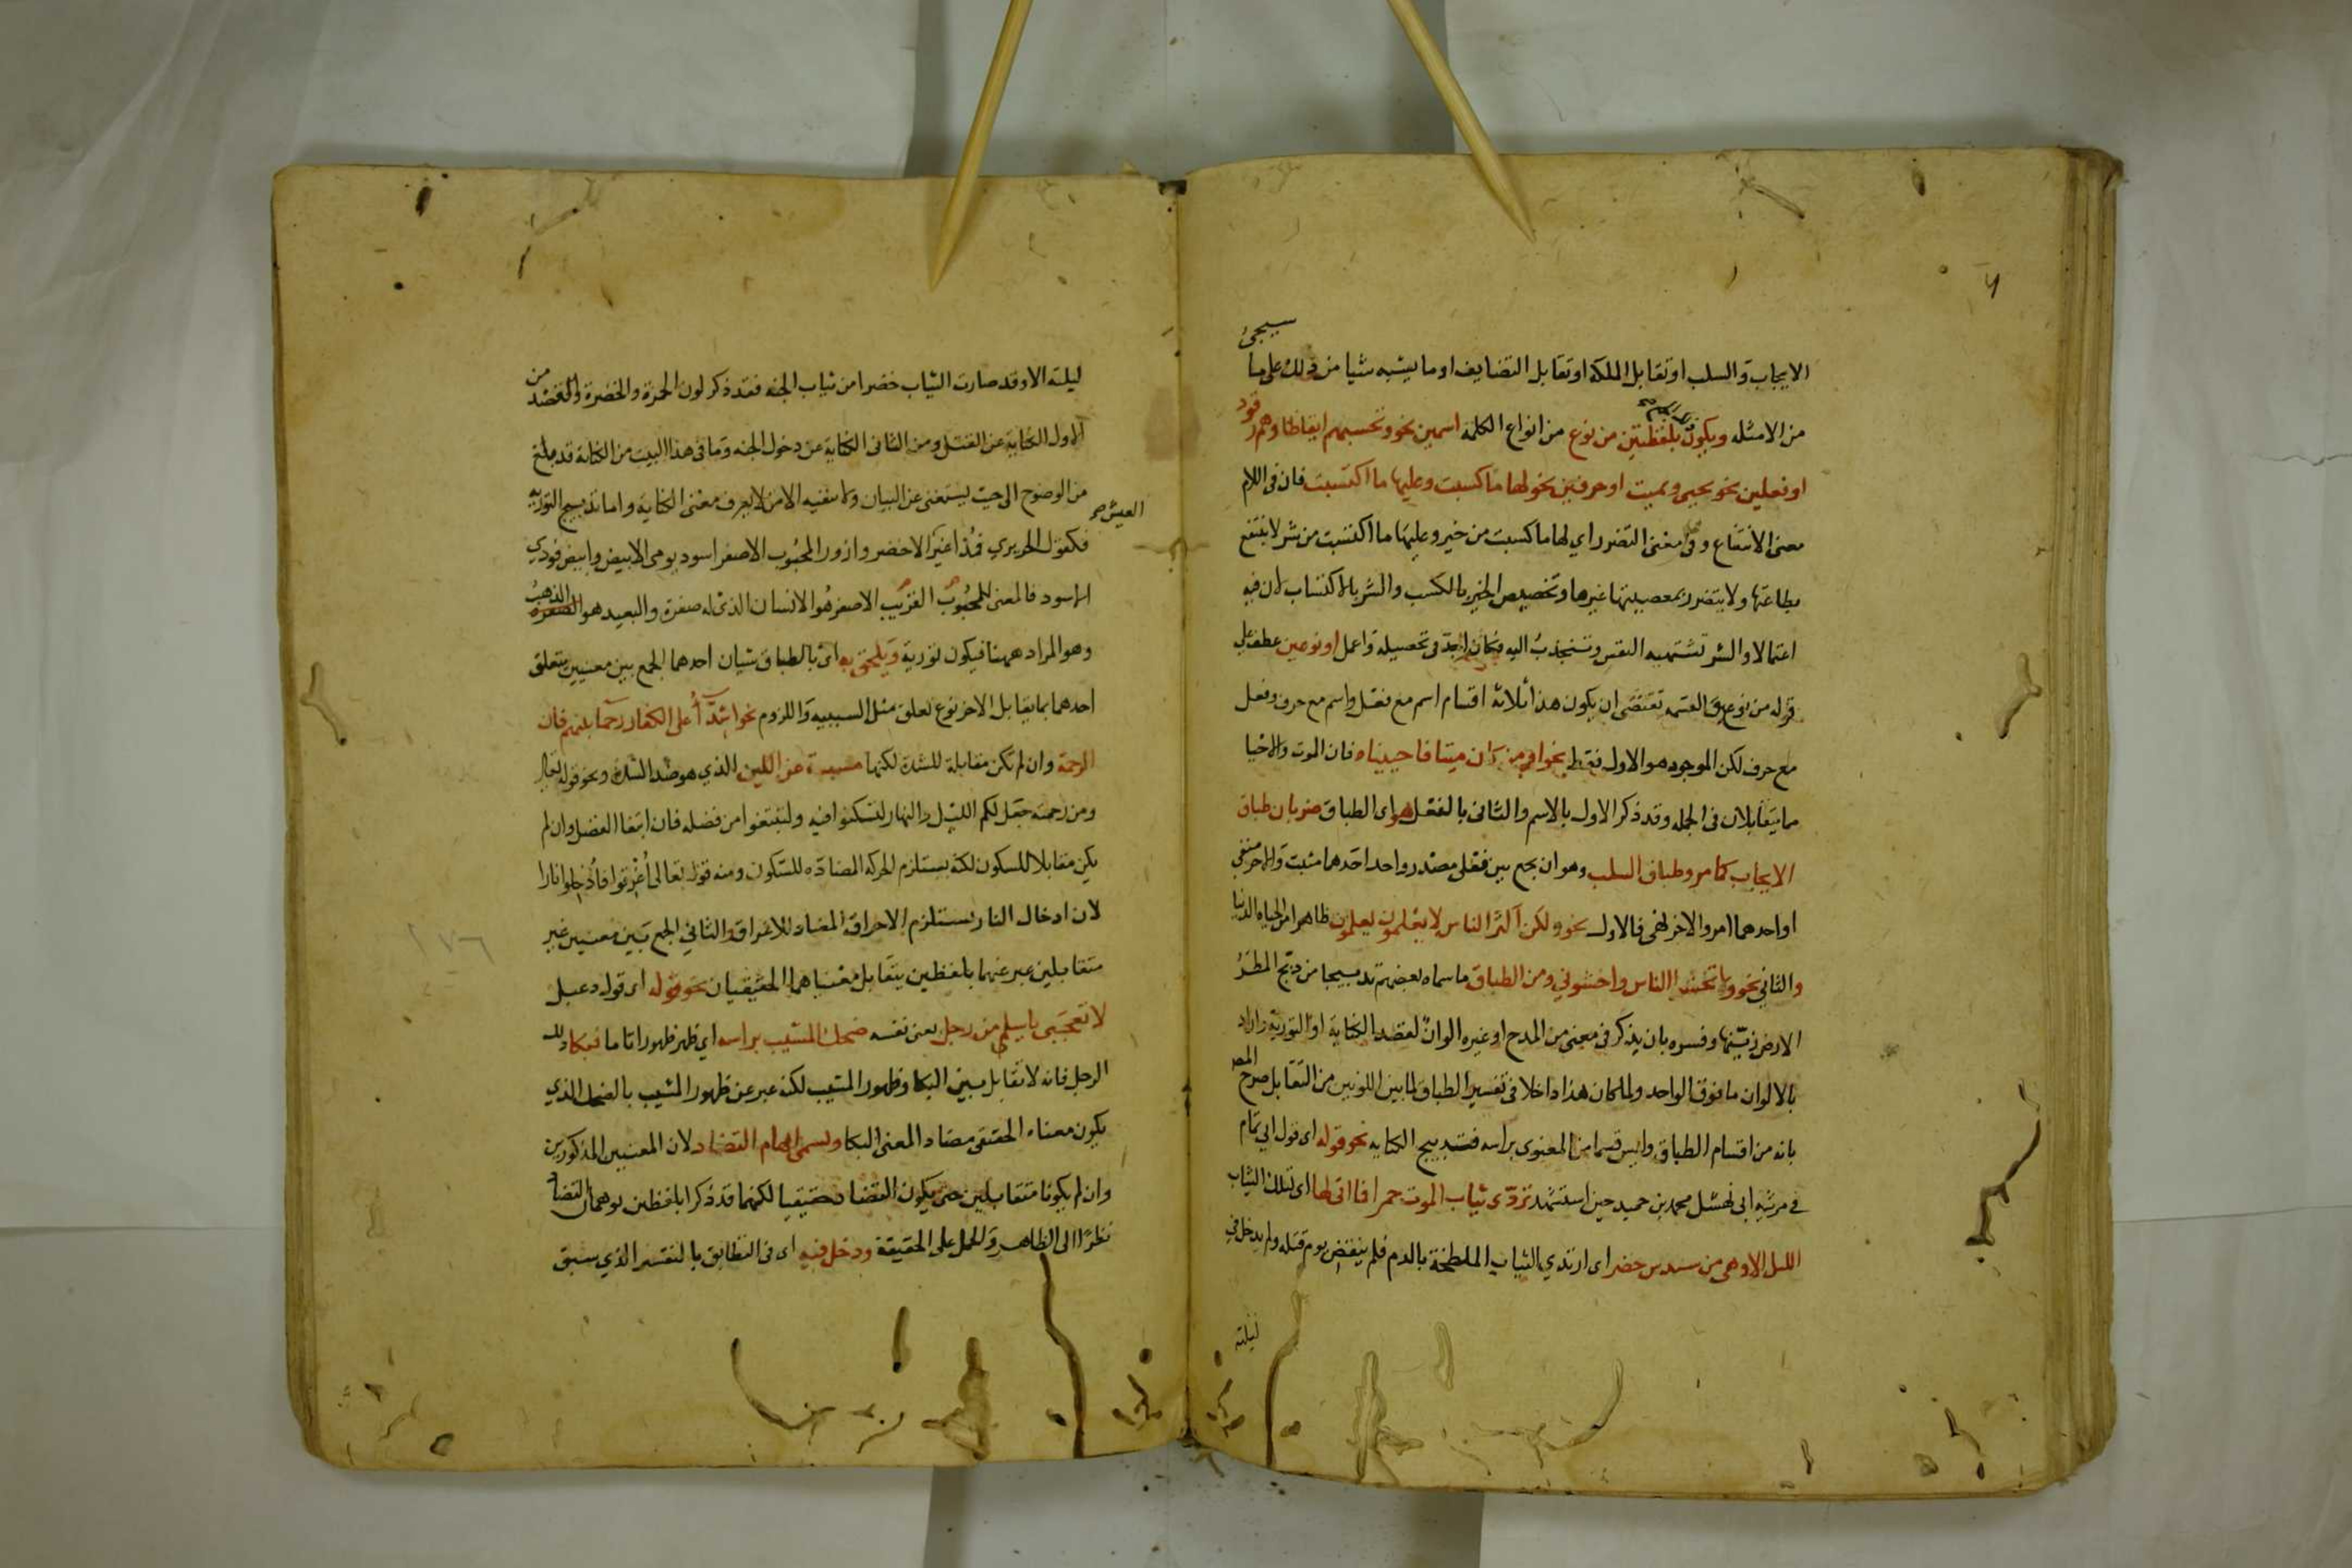 ٦
الايجاب والسلب او تقابل الملكة او تقابل التضايف او ما يشبه شيا من ذلك على ما سيجئ
من الامثله ويكون بلفظتين من نوع من انواع الكلمة اسمين نحو وتحسبهم ايقاظا وهم رقود
او فعلين نحو يحيى ويميت او حرفين نحو لها ما كسبت وعليها ما اكتسبت فان فى اللام
معنى الانتفاع وفى على معنى التضرر اي لها ما كسبت من خير وعليها ما اكتسبت من شر لا ينتفع
بطاعتها ولا يتضرر بمعصيتها غيرها وتخصيص الخير بالكسب والشر بالاكتساب لان فيه
اعتمالا والشر تشتهيه النفس وتنجذب اليه فكان اجد فى تحصيله واعمل او نوعين عطف على
قوله من نوع والقسمه تقتضى ان يكون هذا ثلاثه اقسام اسم مع فعل واسم مع حرف وفعل
مع حرف لكن الموجود هو الاول فقط نحو اومن كان ميتا فاحييناه فان الموت والاحيا
مما يتقابلان فى الجمله وقد ذكر الاول بالاسم والثانى بالفعل وهو اى الطباق ضربان طباق
الايجاب كما مر وطباق السلب وهو ان يجمع بين فعلى مصدر واحد احدهما مثبت والاخر منفى
او احدهما امر والاخر نهى فالاول نحو ولكن اكثر الناس لا يعلمون يعلمون ظاهرا من الحياه الدنيا
والثاني نحو ولا تخشوا الناس واخشوني ومن الطباق ما سماه بعضهم تدبيجا من دبج المطر
الارض زينها وفسره بان يذكر فى معنى من المدح او غيره الوان لقصد الكناية او التورية واراد
بالالوان ما فوق الواحد ولما كان هذا داخلا فى تفسير الطباق لما بين اللونين من التقابل صرح المص
بانه من اقسام الطباق وليس قسما من المعنوى براسه فتدبيج الكنايه نحو قوله اى قول ابي تمام
في مرثيه ابى نهشل محمد بن حميد حين استشهد تردى ثياب الموت حمرا فما اتى لها اى لتلك الثياب
الليل الا وهى من سندس خضر اى ارتدي الثياب الملطخة بالدم فلم ينقض يوم قتله ولم يدخل في
ليلته
ليلته الا وقد صارت الثياب خضرا من ثياب الجنه فقد ذكر لون الحمرة والخضرة والقصد من
الاول الكناية عن القتل ومن الثانى الكناية عن دخول الجنه وما فى هذا البيت من الكناية قد بلغ
من الوضوح الى حيث يستغنى عن البيان ولا ينفيه الا من لا يعرف معنى الكناية واما تدبيج التوريه
فكقول الحريري فمذ اغبر العيش الاخضر وازور المحبوب الاصفر اسود يومى الابيض وابيض فودي
الاسود فالمعنى للمحبوب القريب الاصفر هو الانسان الذى له صفرة والبعيد هو الذهب
وهو المراد ههنا فيكون تورية ويلحق به اى بالطباق شيان احدهما الجمع بين معنيين يتعلق
احدهما بما يقابل الاخر نوع تعلق مثل السببيه واللزوم نحو اشدآ على الكفار رحما بينهم فان
الرحمة وان لم تكن مقابلة للشدة لكنها مسببة عن اللين الذي هو ضد الشدة ونحو قوله تعالى
ومن رحمته جعل لكم الليل والنهار لتسكنوا فيه ولتبتغوا من فضله فان ابتغا الفضل وان لم
يكن مقابلا للسكون لكنه يستلزم الحركه المضاده للسكون ومنه قوله تعالى اغرقوا فأدخلوا نارا
لان ادخال النار يستلزم الاحراق المضاد للاغراق والثاني الجمع بين معنيين غير
متقابلين عبر عنهما بلفظين يتقابل معنياهما الحقيقيان نحو قوله اى قول دعبل
لا تعجبى يا سلم من رجل يعنى نفسه ضحك المشيب براسه اي ظهر ظهورا تاما فبكا ذلك
الرجل فانه لا تقابل بين البكا وظهور المشيب لكنه عبر عن ظهور المشيب بالضحك الذي
يكون معناه الحقيقى مضاد المعنى البكا ويسمى ايهام التضاد لان المعنيين المذكورين
وان لم يكونا متقابلين حتى يكون التضاد حقيقيا لكنهما قد ذكرا بلفظين يوهمان التضاد
نظرا الى الظاهر والحمل على الحقيقة ودخل فيه اى فى التطابق بالتفسير الذي سبق
١٧٦